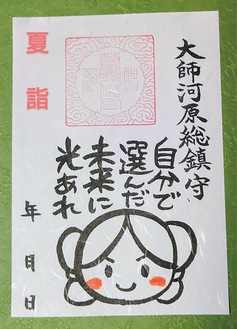 大師河原総鎮守
夏詣
自分で
選んだ
未来に
光あれ
年 月 日